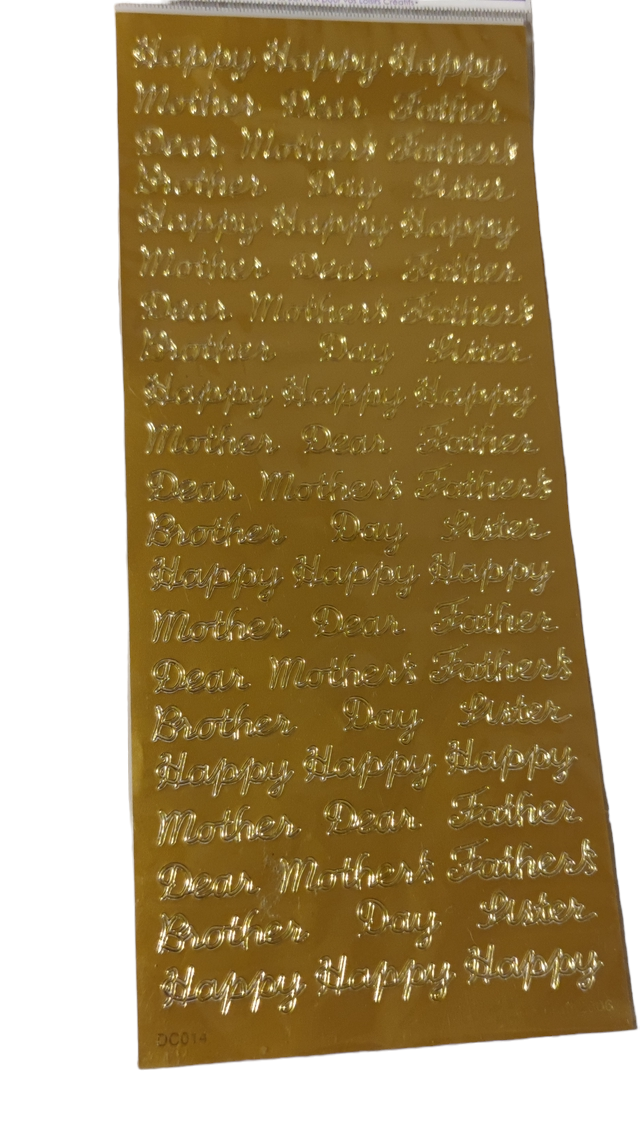 Happy Happy Happy
Mother Dear Father
Dear Mother's Father's
Brother Day Sister
Happy Happy Happy
Mother Dear Father
Dear Mother's Father's
Brother Day Sister
Happy Happy Happy
Mother Dear Father
Dear Mother's Father's
Brother Day Sister
Happy Happy Happy
Mother Dear Father
Dear Mother's Father's
Brother Day Sister
Happy Happy Happy
Mother Dear Father
Dear Mother's Father's
Brother Day Sister
Happy Happy Happy
DC014